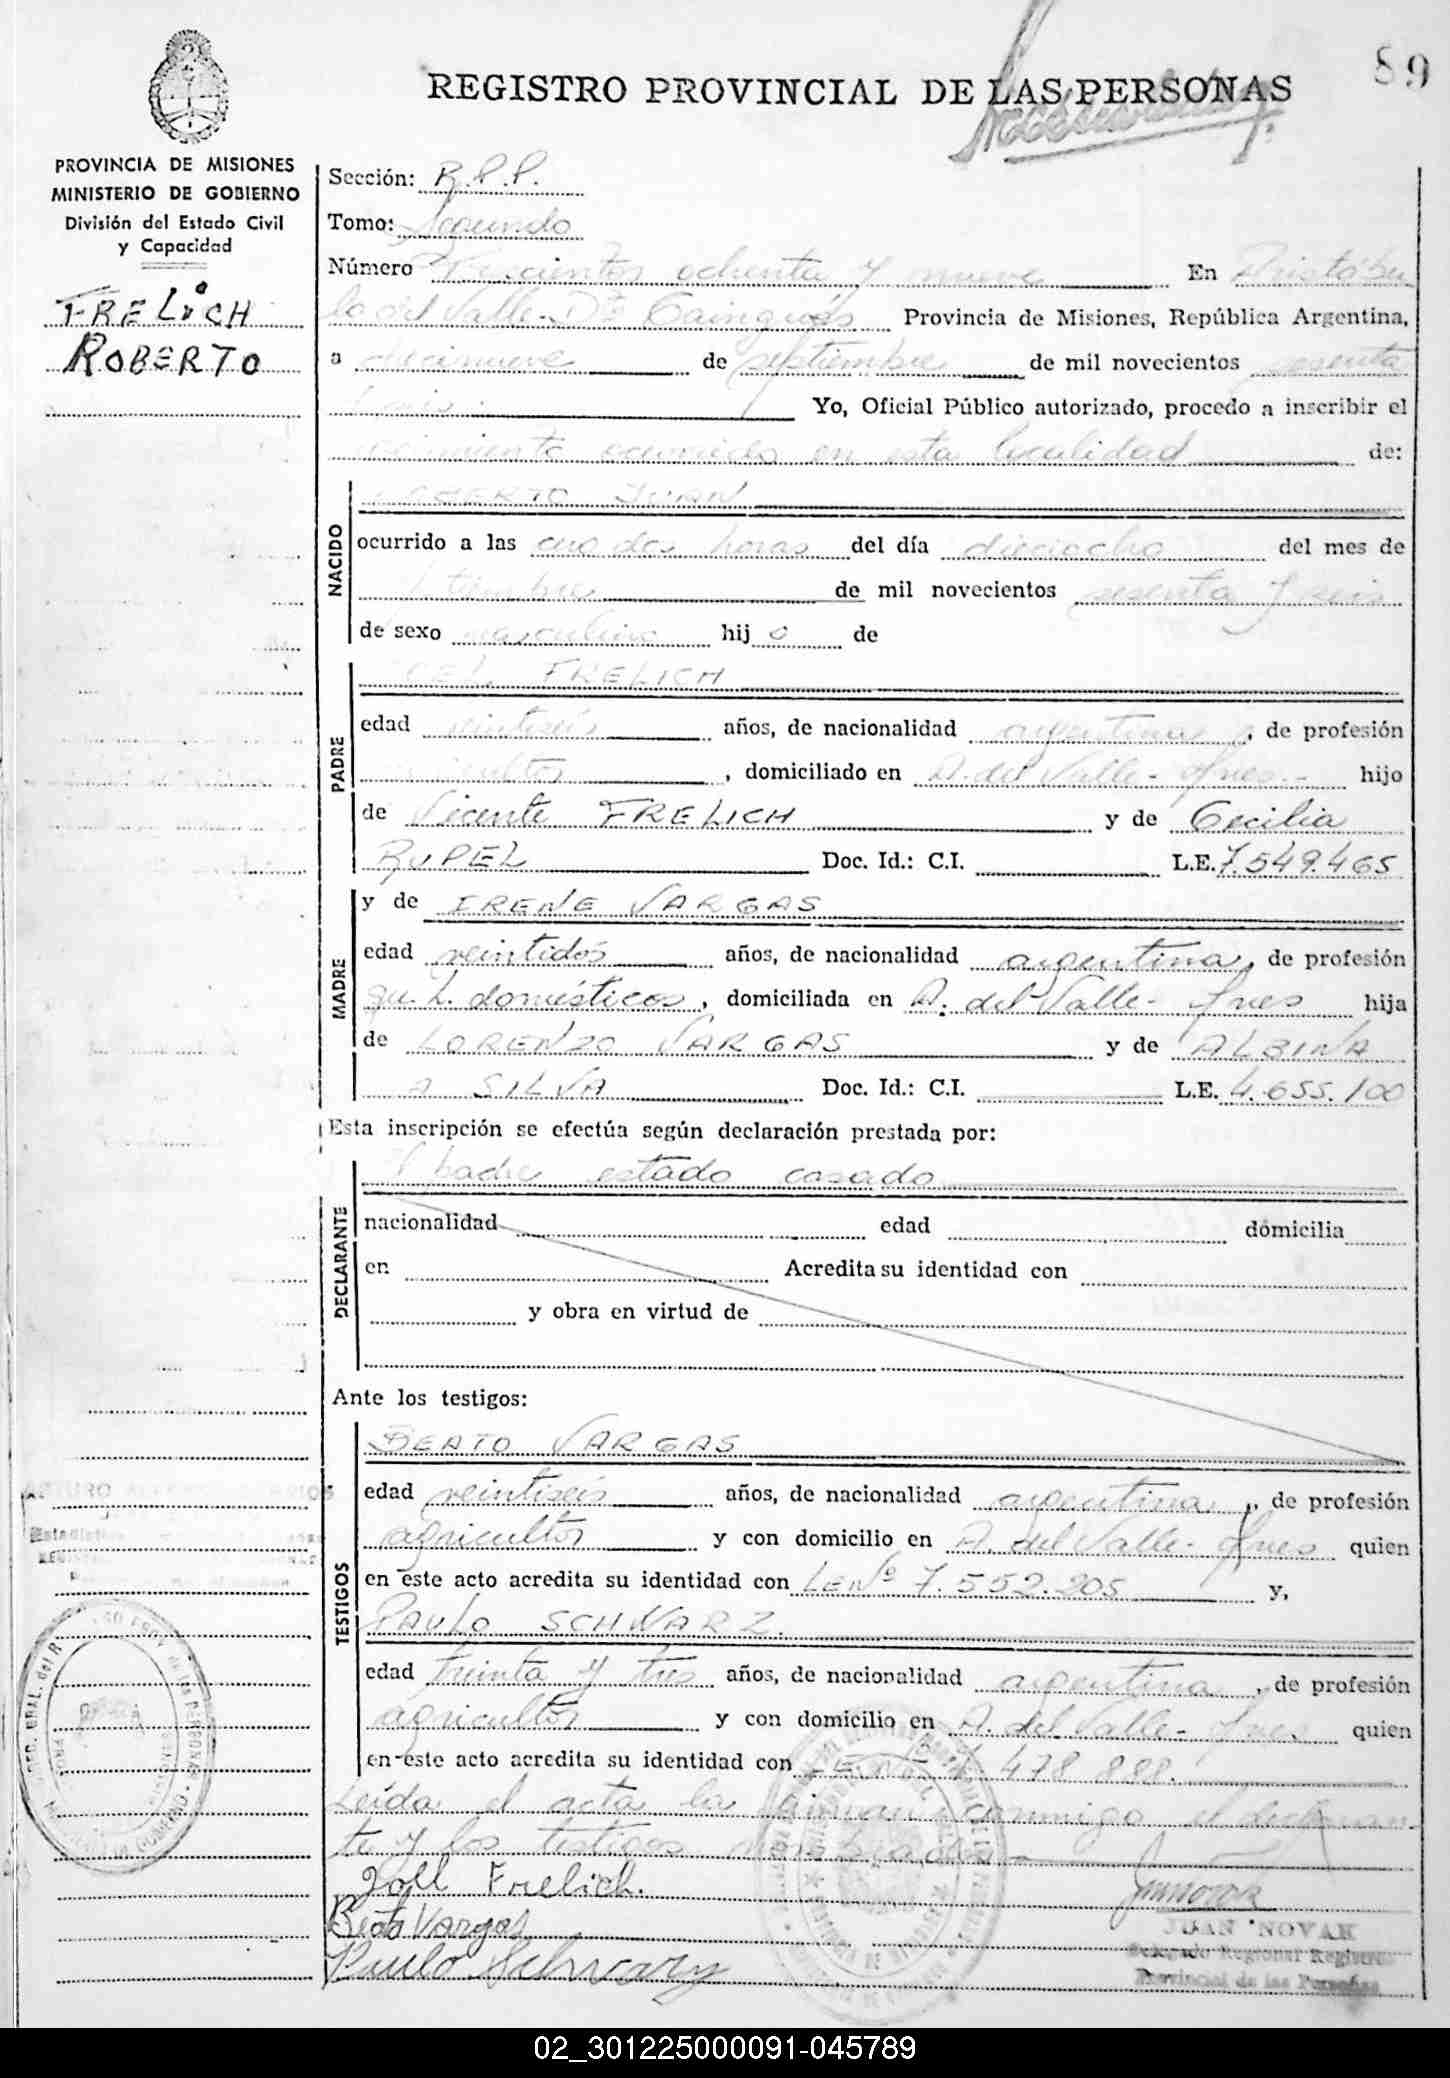 89
REGISTRO PROVINCIAL DE LAS PERSONAS
PROVINCIA DE MISIONES
MINISTERIO DE GOBIERNO
División del Estado Civil
y Capacidad
FRELICH
ROBERTO
Sección: R.P.P.
Tomo: Segundo
Número Trescientos ochenta y nueve En Aristóbu
lo del Valle - Dto Cainguás Provincia de Misiones, República Argentina,
a diecinueve de septiembre de mil novecientos sesenta
y seis. Yo, Oficial Público autorizado, procedo a inscribir el
nacimiento ocurrido en esta localidad de:
NACIDO
ROBERTO JUAN
ocurrido a las dos horas del día dieciocho del mes de
septiembre de mil novecientos sesenta y seis
de sexo masculino hij o de
PADRE
FRELICH
edad veintiseis años, de nacionalidad argentina, de profesión
agricultor, domiciliado en A. del Valle - Mnes. - hijo
de Vicente FRELICH y de Cecilia
RUPEL Doc. Id.: C.I. L.E. 7.549.465
MADRE
y de IRENE VARGAS
edad veintidós años, de nacionalidad argentina, de profesión
qu. h. domésticos, domiciliada en A. del Valle - Mnes hija
de LORENZO VARGAS y de ALBINA
A SILVA Doc. Id.: C.I. L.E. 4.655.100
Esta inscripción se efectúa según declaración prestada por:
DECLARANTE
el padre estado casado
nacionalidad edad domicilia
en Acredita su identidad con
y obra en virtud de
Ante los testigos:
TESTIGOS
BEATO VARGAS
edad veintiseis años, de nacionalidad argentina, de profesión
agricultor y con domicilio en A. del Valle - Mnes quien
en este acto acredita su identidad con LE Nº 7.552.205 y,
PAULO SCHWARZ.
edad treinta y tres años, de nacionalidad argentina, de profesión
agricultor y con domicilio en A. del Valle - Mnes. quien
en este acto acredita su identidad con LE Nº 478.888.
Leída el acta la firman conmigo el declaran-
te y los testigos nombrados -
Joel Frelich.
Beato Vargas
Paulo Schwarz
JUAN NOVAK
Delegado Regional Registro
Provincial de las Personas
02_301225000091-045789